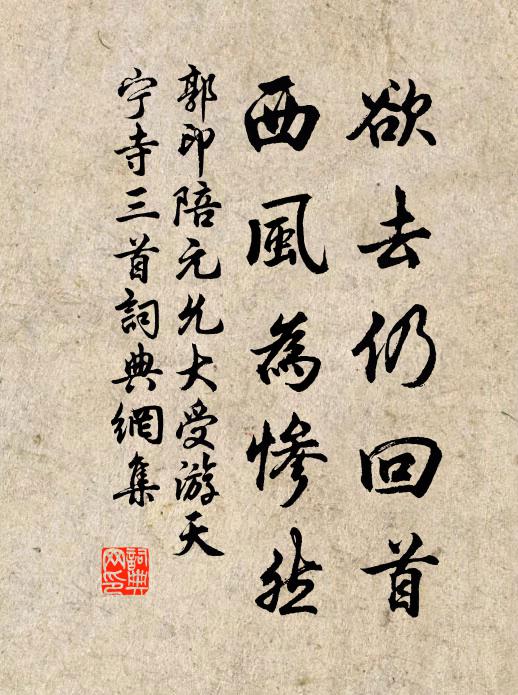 欲去仍回首
西風為慘然
郭印陪元允大受游天
宁寺三首詞典網集
詞典網印